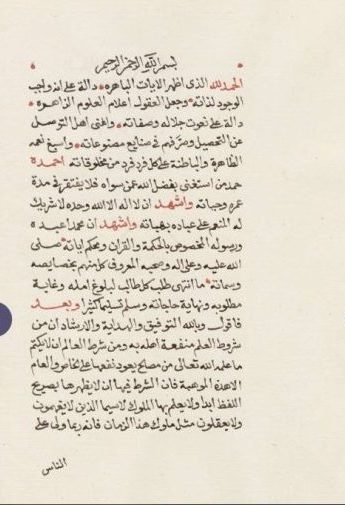 بسم الله الرحمن الرحيم
الحمد لله الذى اظهر الايات الباهره دالة على انه واجب
الوجود لذاته وجعل العقول أعلام العلوم الزاهره
دالة على نعوت جلاله وصفاته وافنى اهل التوصل
عن التحصيل وصرّفهم فى صنايع مصنوعاته واسبغ نعمه
الظاهرة والباطنة على كل فرد فرد من مخلوقاته احمده
حمد من استغنى بفضل الله عمن سواه فلا يفتقر فى مدة
عمره وحياته واشهد ان لا اله الا الله وحده لا شريك
له المنعم على عباده بهباته واشهد ان محمدا عبده
ورسوله المخصوص بالحكمة والقران ومحكم اياته صلى
الله عليه وعلى اله وصحبه المعروف كل منهم بخصايصه
وسماته ما انتهى طلب كل طالب لبلوغ امله وغاية
مطلوبه ونهاية حاجاته وسلم تسليما كثيرا وبعد
فاقول وبالله التوفيق والهداية والارشاد ان من
شروط العلم منفعة اهله به ومن شرط العالم ان لا يكتم
ما علمه الله تعالى من مصالح يعود نفعها على الخاص والعام
الا هذه الموهبة فان الشرط فيها ان لا يظهرها بصريح
اللفظ ابدا ولا يعلم بها الملوك لا سيما الذين لا يفهمون
ولا يعقلون مثل ملوك هذا الزمان فانه ربما ولى على
الناس